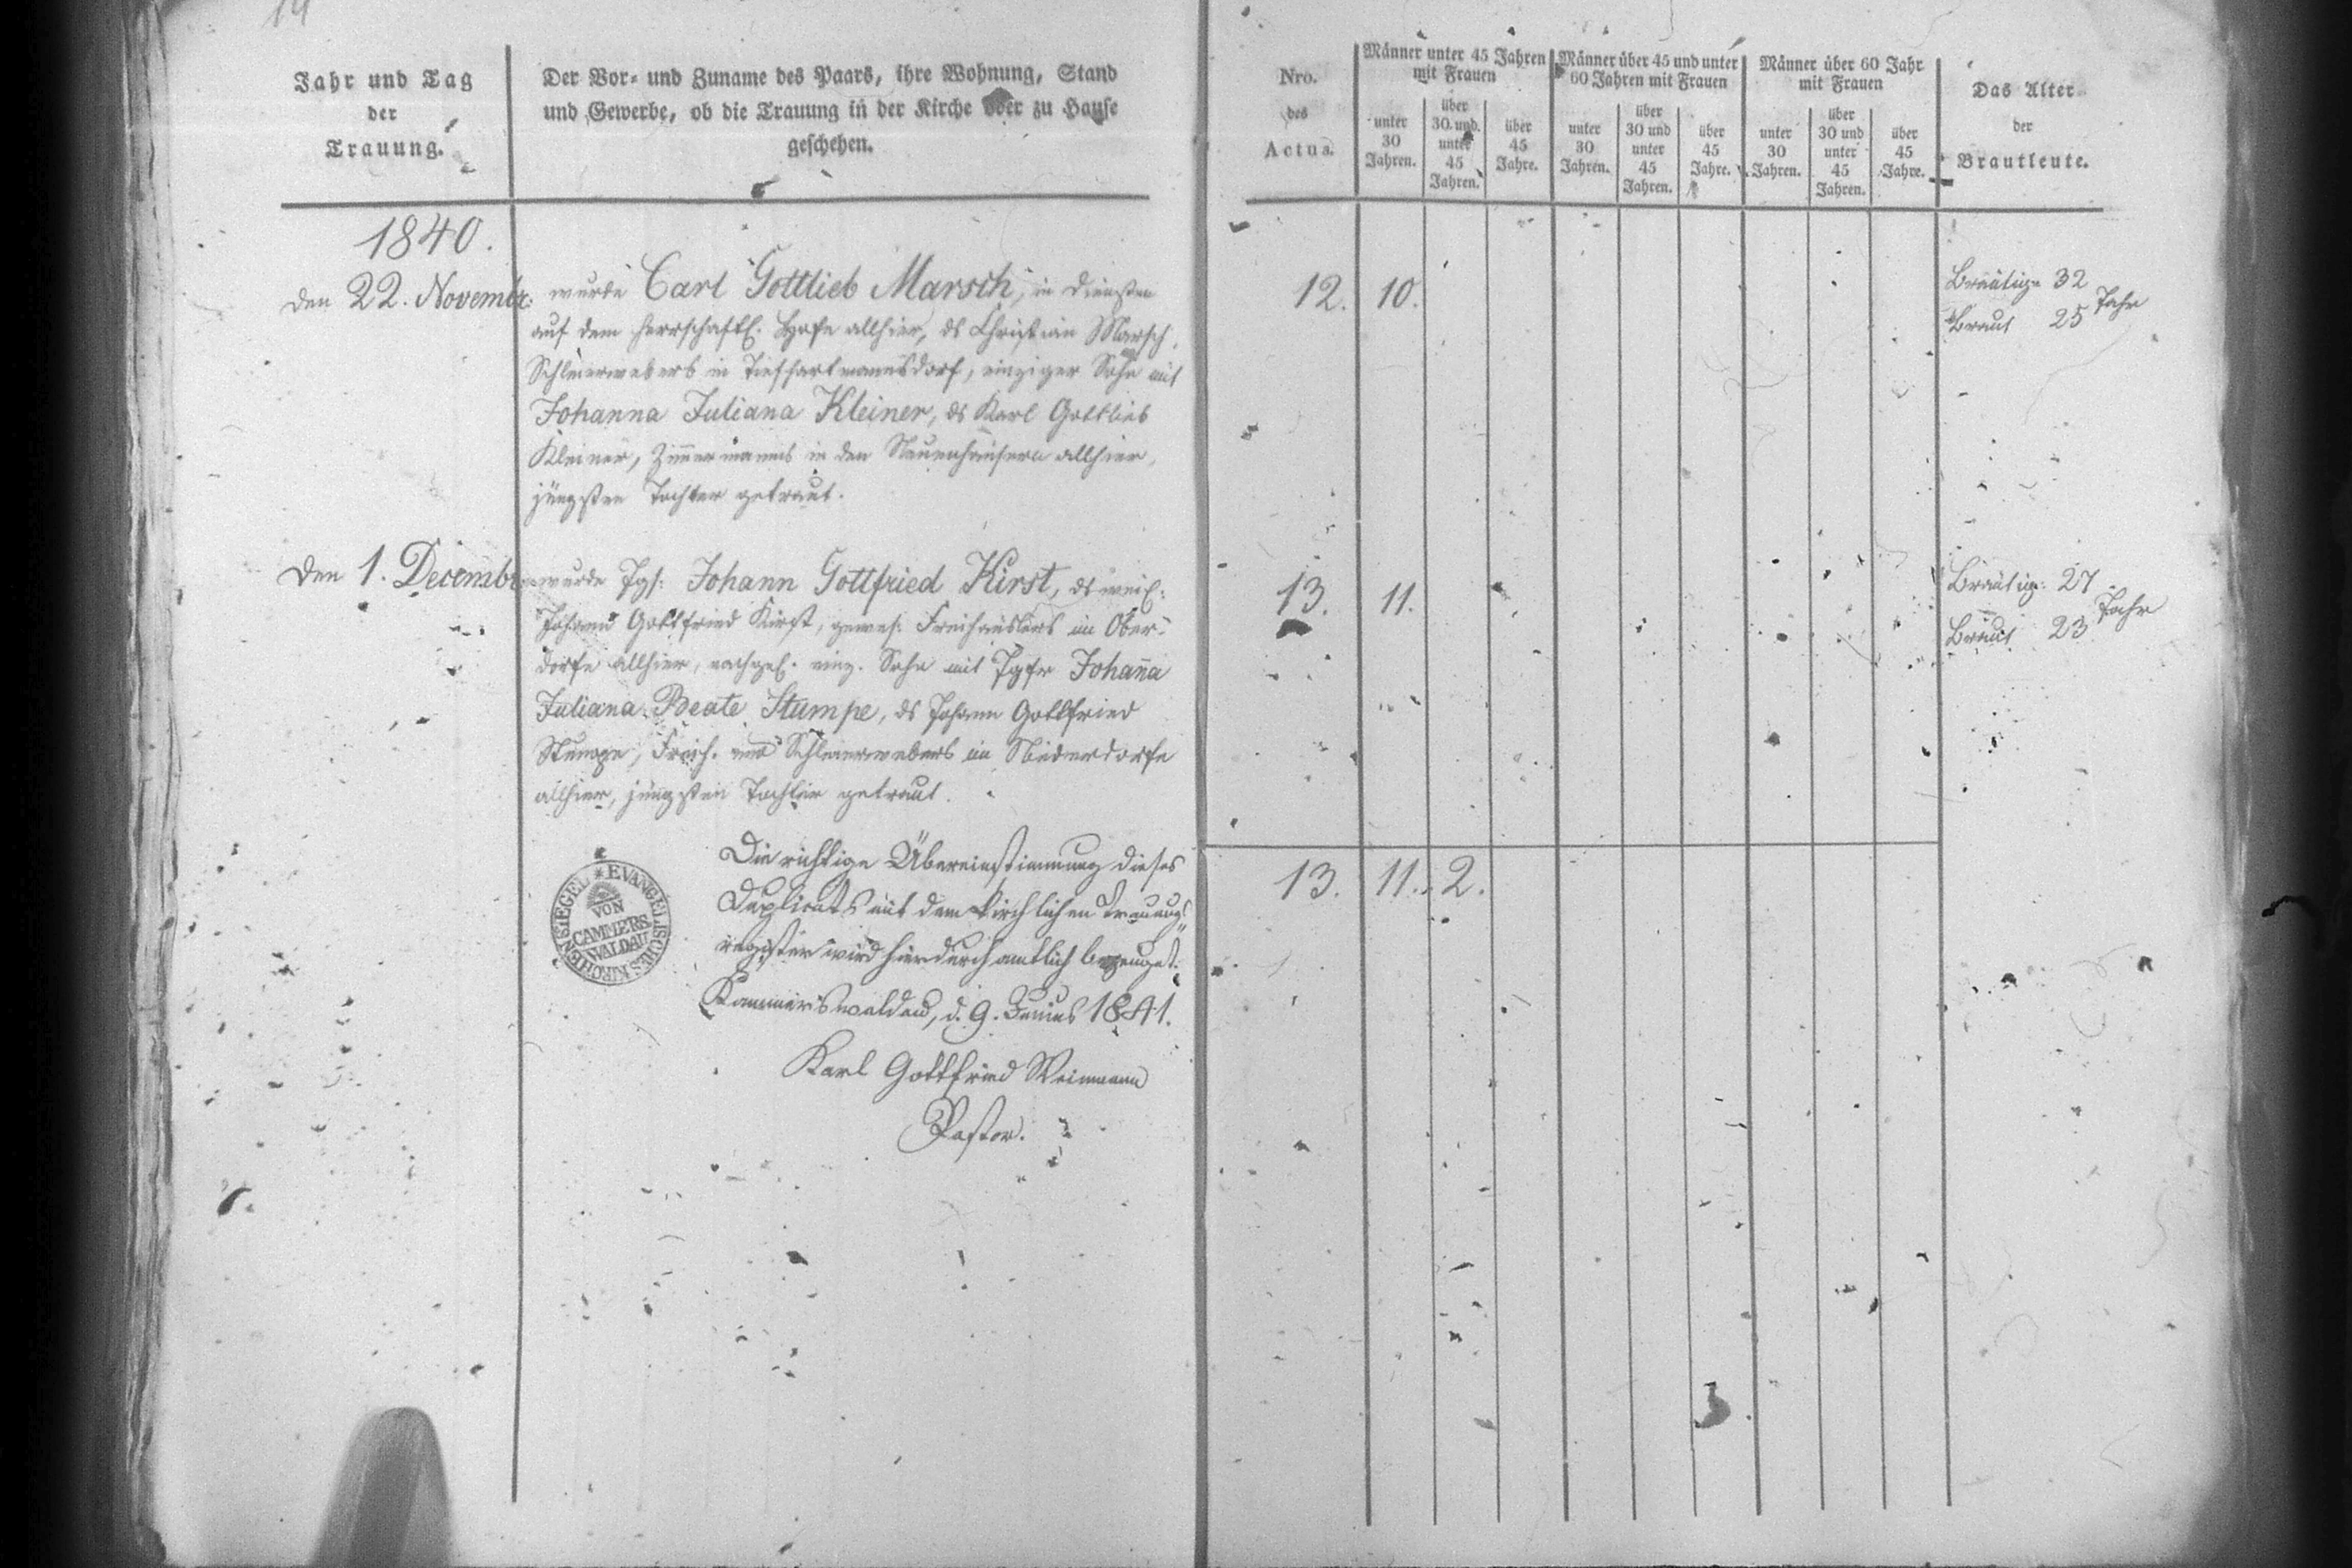 14
Jahr und Tag
der
Trauung.
Der Vor- und Zuname des Paars, ihre Wohnung, Stand
und Gewerbe, ob die Trauung in der Kirche oder zu Hause
geschehen.
1840.
den 22. Novembr.
wurde Carl Gottlieb Marsch, in Diensten
auf dem herrschaftl. Hofe allhier, ds Christian Marsch,
Schleierwebers in Tiefhartmannsdorf, einziger Sohn mit
Johanna Juliana Kleiner, ds Karl Gottlieb
Kleiner, Zim̄ermanns in den Neuenhäusern allhier,
jüngsten Tochter getraut.
den 1. Decembr
wurde Jgs: Johann Gottfried Kirst, ds weil:
Johann Gottfried Kirst, gewes: Freihäuslers im Ober-
dorfe allhier, nachgel. einz. Sohn mit Jgfr Johan̄a
Juliana Beate Stumpe, ds Johann Gottfried
Stumpe, Freih. und Schleierwebers im Niederdorfe
allhier, jüngsten Tochter getraut.
Die richtige Übereinstimmung dieses
Duplicats mit dem kirchlichen Trauungs-
register wird hierdurch amtlich bezeuget.
Kammerswaldau, d. 9. Junius 1841.
Karl Gottfried Weimann
Pastor.
EVANGELISCHES KIRCHENSIEGEL
VON
CAMMERS
WALDAU
Nro.
des
Actus.
Männer unter 45 Jahren
mit Frauen
unter
30
Jahren.
über
30 und
unter
45
Jahren.
über
45
Jahre.
Männer über 45 und unter
60 Jahren mit Frauen
unter
30
Jahren.
über
30 und
unter
45
Jahren.
über
45
Jahre.
Männer über 60 Jahr
mit Frauen
unter
30
Jahren.
über
30 und
unter
45
Jahren.
über
45
Jahre.
Das Alter
der
Brautleute.
12. 10.
Bräutig. 32
Braut 25 Jahr
13. 11.
Bräutig. 27
Braut 23 Jahr
13. 11. 2.